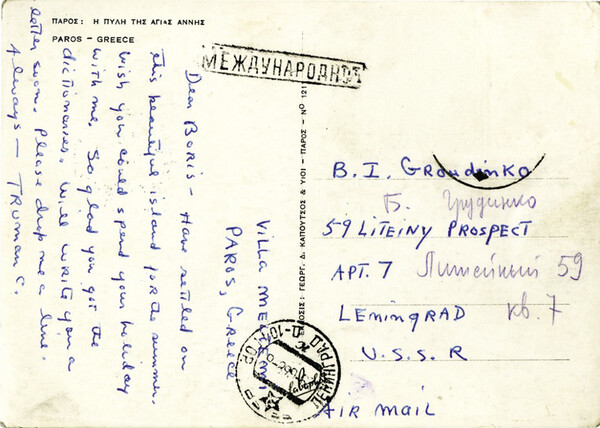 ΠΑΡΟΣ: Η ΠΥΛΗ ΤΗΣ ΑΓΙΑΣ ΑΝΝΗΣ
PAROS - GREECE
МЕЖДУНАРОДНОЕ
Villa Meltemi
PAROS, Greece
Dear Boris - Have settled on
this beautiful island for the summer.
Wish you could spend your holiday
with me. So glad you got the
dictionaries. Will write you a
letter soon. Please drop me a line.
Always - TRUMAN C.
ΓΕΩΡΓ. Δ. ΚΑΠΟΥΤΣΟΣ & ΥΙΟΙ - ΠΑΡΟΣ - Νο 121
B. I. Groudinko
Б. Грудинко
59 LITEINY PROSPECT
APT. 7 Литейный 59
LENINGRAD кв. 7
U.S.S.R
AIR MAIL